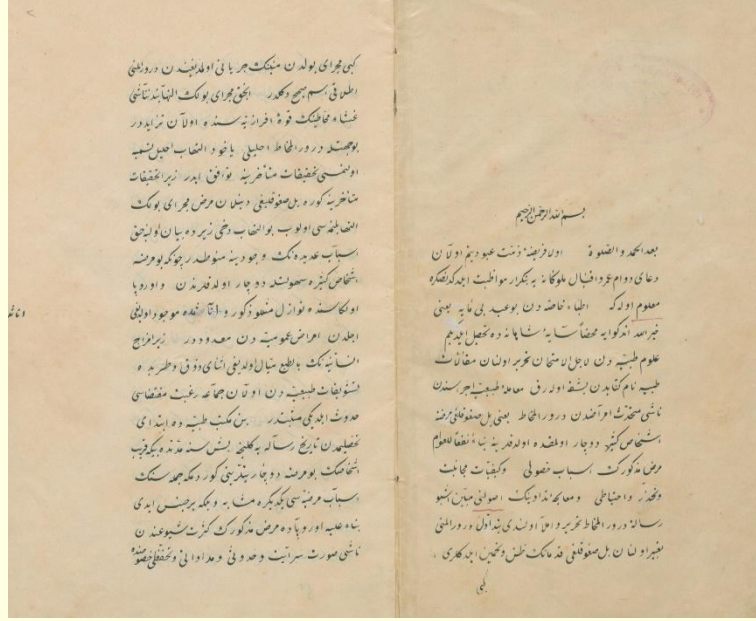 بسم الله الرحمن الرحيم
بعد الحمد والصلوة اوله فريضهٔ ذمت عبوديتم اولان
دعای دوام عمر و اقبال ملوكانه يه تكرار مواظبت ايدلدكدنصكره
معلوم اوله كه اطباء خاصه دن بو عبد بی مايه يعنی
خير الله اندكوايه محضا سايهٔ شاهانه ده تحصيل ايتديكم
علوم طبيه دن لاجل الامتحان تحرير اولنان مقالات
طبيه نام كتابدن بشقه اوله رق معاملهٔ طبيعيه جر سندن
ناشی متحدث امراضدن درور المخاط يعنی بل صغوقلغی مرضنه
اشخاص كثيره دوچار اولمقده اولدقلرينه بناءً نفعاً للعموم
مرض مذكورك اسباب حصولی و كيفيات مجانبت
وتحذر و احتياطی ومعالجه و مداواتنك اصولنی مبين اشبو
رسالهٔ درور المخاط تحرير و املا اولندی بنداول درور المنی
تعبير اولنان بل صغوقلغی قدمانك ظن وتخمين ايتدكلری
كبی
كبی مجرای بولدن منينك جريانی اولمديغندن درور المنی
اطلاقی اسم صحيح دكلدر انجق مجرای بولك التهابندن ناشی
غشاء مخاطينك قوهٔ افرازيه سنده اولان تزايددر
بوجهتله درور المخاط احليلی ياخود التهاب احليل تسميه
اولنمسی تحقيقات متأخرينه توافق ايدر زيرا تحقيقات
متأخرينه كوره بل صغوقلغی دينلان مرض مجرای بولك
التهابلنمسی اولوب بو التهاب دخی زيرده بيان اولنه جق
اسباب عديده نك وجودينه منوطدر چونكه بو مرضه
اشخاص كثيره سهولتله دوچار اولدقلرندن و اوروپا
اولكاسنده نوازل منفعلهٔ مذكور و موجود اولديغی
اجلدن امراض عموميتدن معدوددر زيرا مزاج
انسانيه نك بالطبع ميال اولديغی اثنای ذوق وطربده
تشويقات طبيعتدن اولان جماعه رغبت مقتضاسی
حدوث ايتديكی مثبتدر بن مكتب طبيه ده ابتدای
تحصيلمدن تاريخ رسالهيه كلنجه بش سنه مدتده بيكه قريب
اشخاصك بو مرضه دوچار بيتلريني كوردمكه جمله سنك
اسباب مرضيه سی بكديكره مشابه وبلكه بر جنس ايدی
بناءً عليه اوروپاده مرض مذكورك كثرت شيوعندن
ناشی صورت سرايت وحدوثی ومداواتی وتحفظی خصوصنده